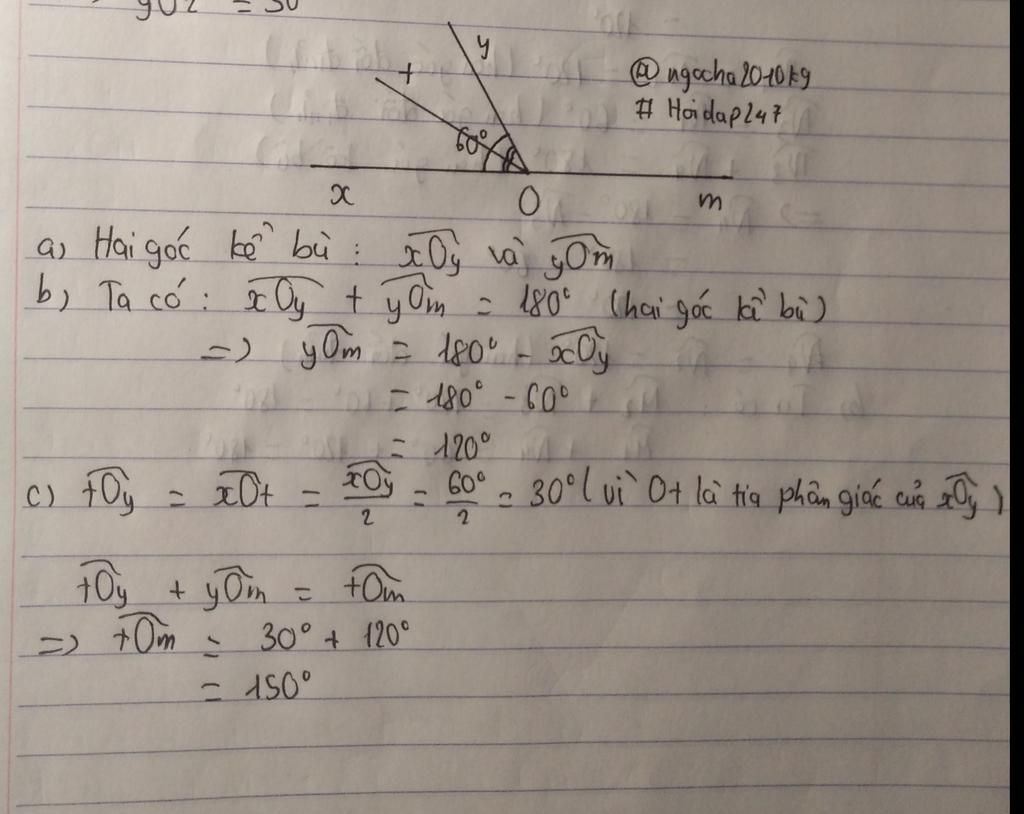 yOz = 30
y
t
@ngocha2010kg
# Hoidap247
60°
x
O
m
a) Hai góc kề bù : xOy và yOm
b) Ta có : xOy + yOm = 180° (hai góc kề bù)
=> yOm = 180° - xOy
= 180° - 60°
= 120°
c) tOy = xOt = xOy/2 = 60°/2 = 30° ( vì Ot là tia phân giác của xOy )
tOy + yOm = tOm
=> tOm = 30° + 120°
= 150°